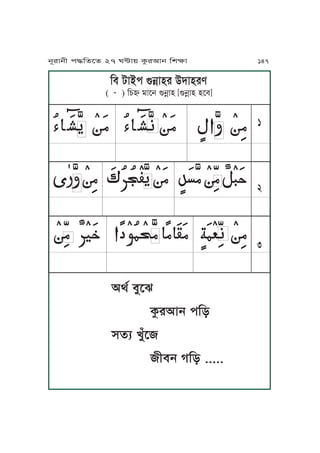 নূরানী পদ্ধতিতে ২৭ ঘণ্টায় কুরআন শিক্ষা ১৪৭
বি টাইপ গুন্নাহর উদাহরণ
( ّ ) চিহ্ন মানে গুন্নাহ [গুন্নাহ হবে]
مِنْ وَّالٍ مَنْ نَّشَآءُ مَنْ يَّشَآءُ ১
حَبْلٌ مِّنْ مَّسَدٍ مَنْ يَّفْجُرُكَ مِنْ وَّرٰى ২
مِنْ نِّعْمَةٍ مَقَامًا مَّحْمُوْدًا خَيْرٌ مِّنْ ৩
অর্থ বুঝে
কুরআন পড়ি
সত্য খুঁজে
জীবন গড়ি .....